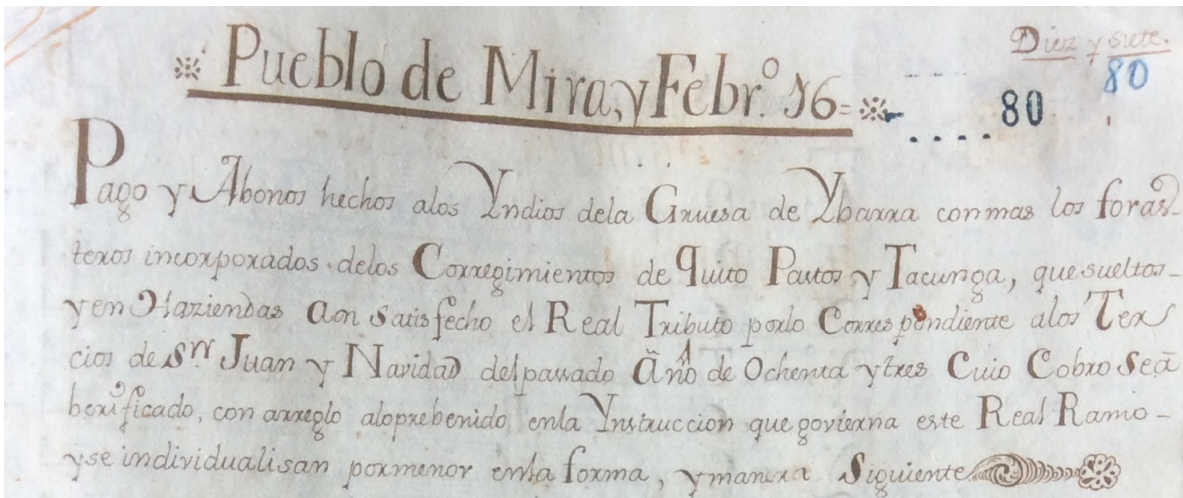 Diez y siete.
Pueblo de Mira, y Febr.º 16=
80
80
Pago y Abonos hechos alos Yndios dela Gruesa de Ybarra conmas los foras-
teros incorporados delos Corregimientos de Quito Pastos y Tacunga, que sueltos-
y en Haziendas aon satisfecho el Real Tributo porlo Correspondiente alos Ters
cios de Sn. Juan y Navidad del passado Año de Ochenta y tres Cuio Cobro seā
berificado, con arreglo aloprebenido enla Ynstruccion que govierna este Real Ramo-
y se individualisan pormenor enla forma, y manera Siguiente